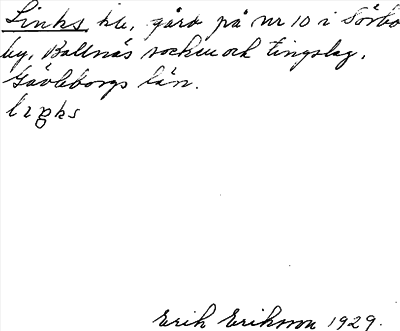 Links hu, gård på nr 10 i Sörbo
by, Bollnäs socken och tingslag,
Gävleborgs län.
Erik Eriksson 1929.